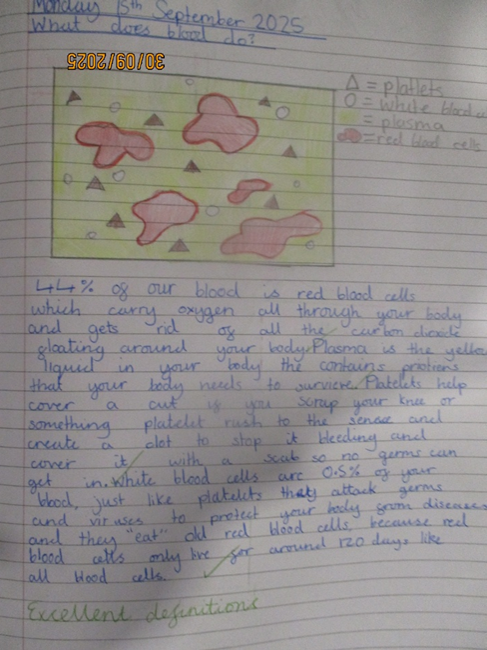 Monday 15th September 2025
What does blood do?
30/09/2025
△ = platlets
O = white blood
= plasma
= red blood cells
44% of our blood is red blood cells
which carry oxygen all through your body
and gets rid of all the carbon dioxide
floating around your body. Plasma is the yellow
liquid in your body the contains protiens
that your body needs to surviere. Platelets help
cover a cut if you scrap your knee or
something platelet rush to the sense and
create a clot to stop it bleeding and
cover it with a scab so no germs can
get in. White blood cells are 0.5% of your
blood, just like platelets thats attack germs
and viruses to protect your body from diseases
and they "eat" old red blood cells because red
blood cells only live for around 120 days like
all blood cells.
Excellent definitions